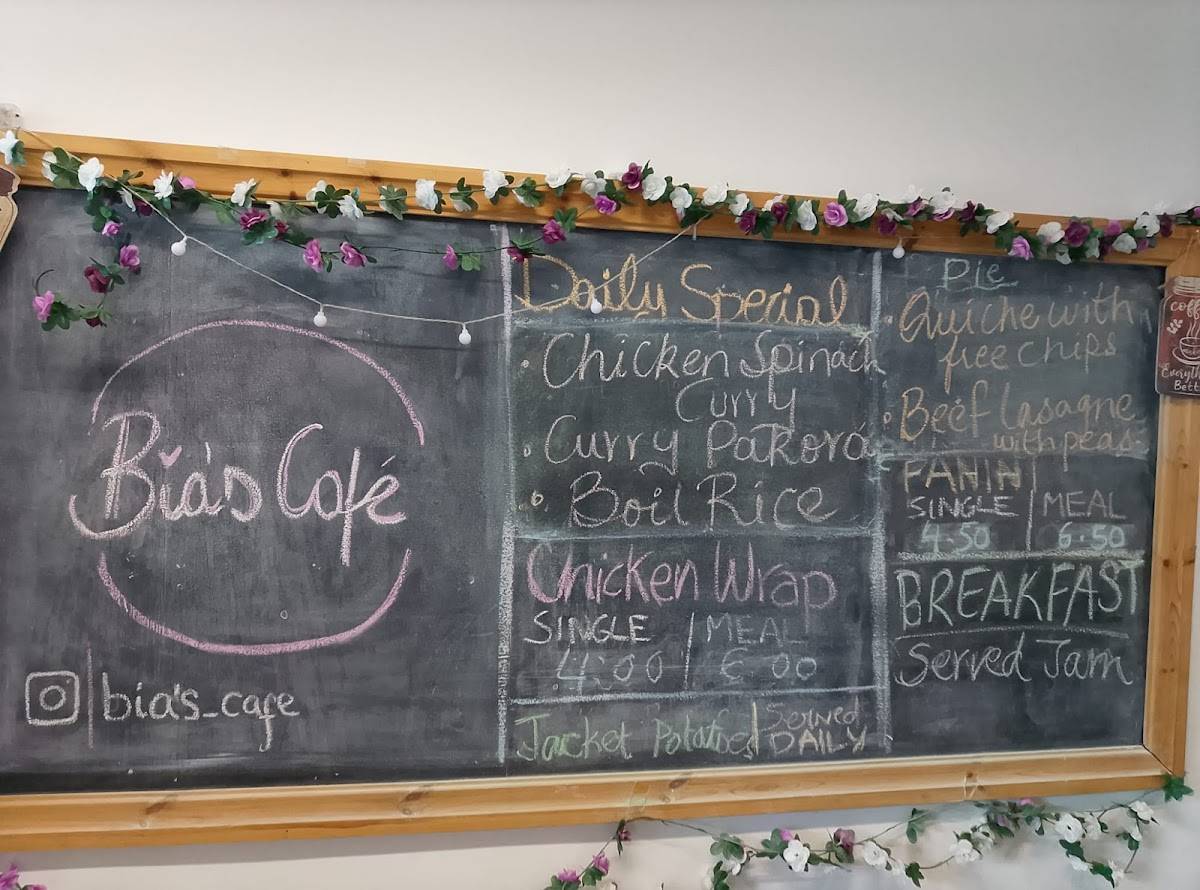 Bia's Café
bia's_cafe
Daily Special
Chicken Spinach
Curry
Curry Pakora
Boil Rice
Chicken Wrap
SINGLE | MEAL
4:00 | 6 00
Jacket Potatoes | Served
DAILY
Pie
Quiche with
free chips
Beef lasagne
with peas
PANINI
SINGLE | MEAL
4.50 | 6.50
BREAKFAST
Served